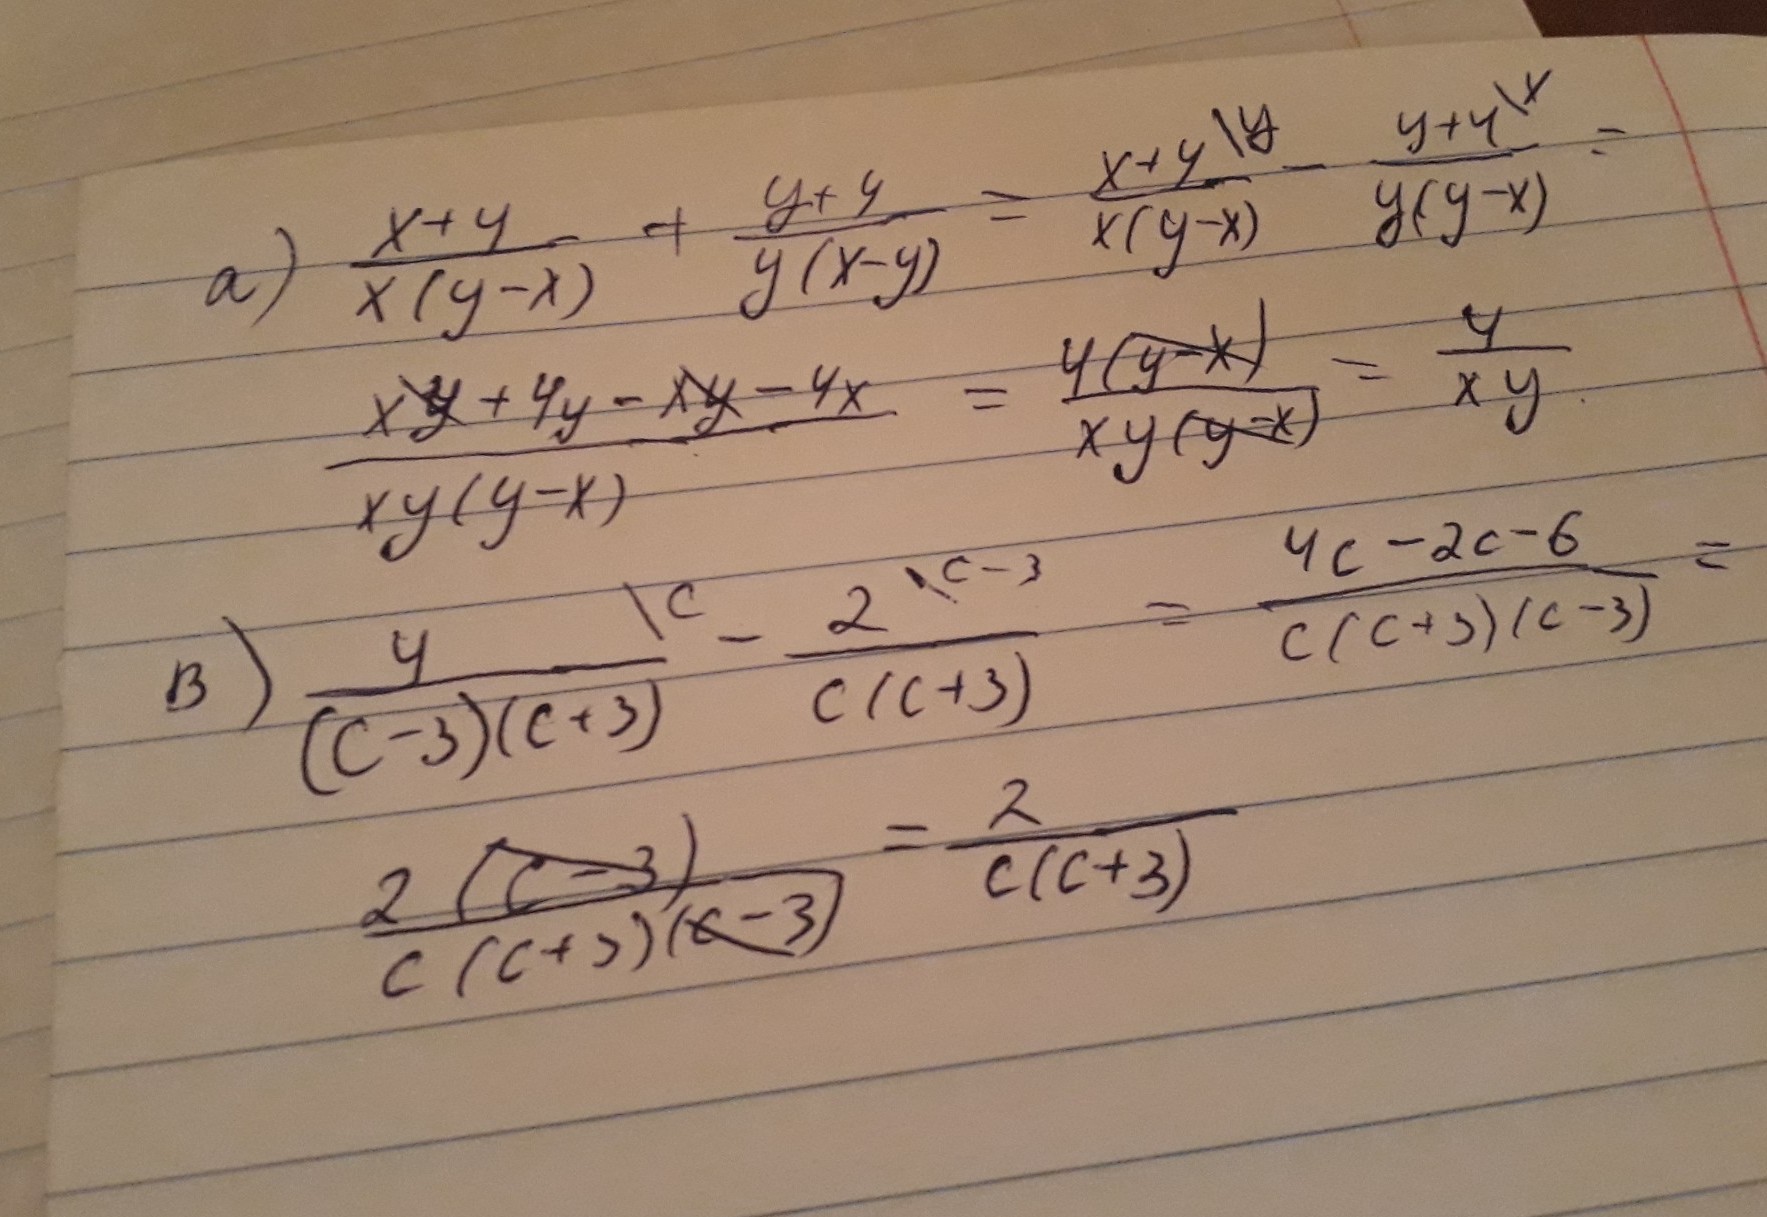 a) (x+4)/(x(y-x)) + (y+4)/(y(x-y)) = (x+4\y)/(x(y-x)) - (y+4\x)/(y(y-x)) =
(xy+4y-xy-4x)/(xy(y-x)) = (4(y-x))/(xy(y-x)) = 4/(xy)
B) (4\c)/((c-3)(c+3)) - (2\c-3)/(c(c+3)) = (4c-2c-6)/(c(c+3)(c-3)) =
(2(c-3))/(c(c+3)(c-3)) = 2/(c(c+3))